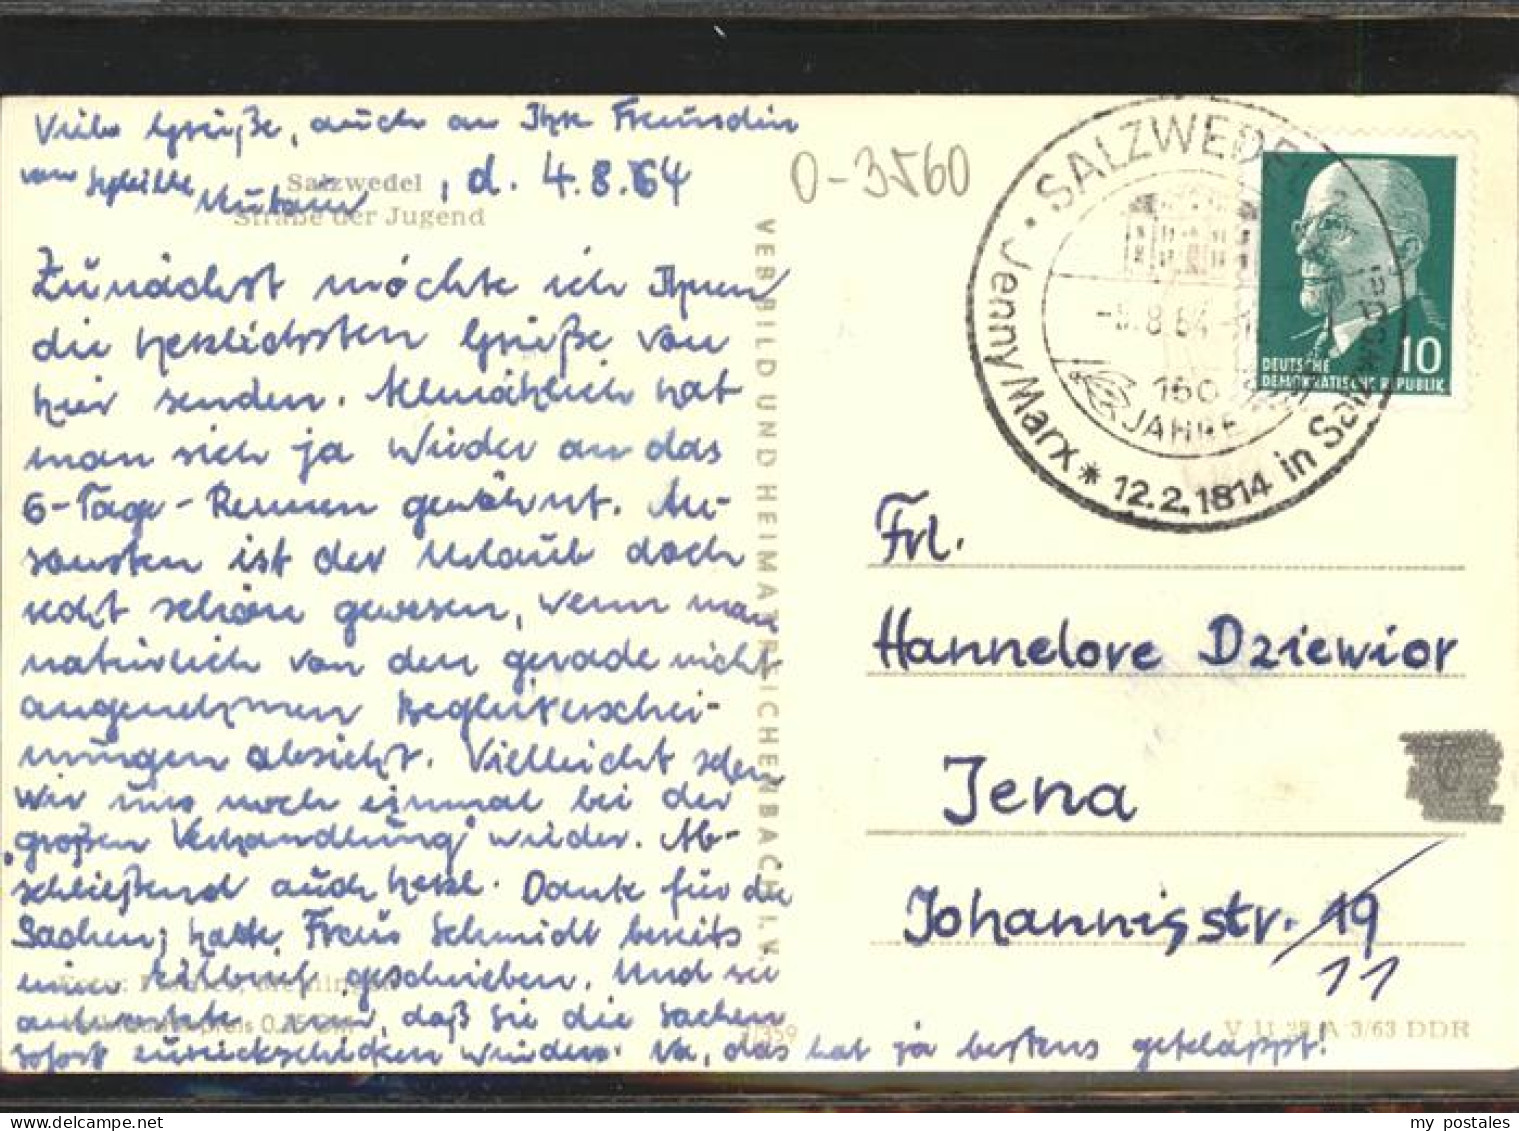 Viele Grüße, auch an Ihre Freundin
von
, d. 4.8.64
Salzwedel
Straße der Jugend
Zunächst möchte ich Ihnen
die herzlichsten Grüße von
hier senden. Allmählich hat
man sich ja wieder an das
6-Tage-Rennen gewöhnt. An-
sonsten ist der Urlaub doch
recht schön gewesen, wenn man
natürlich von den gerade nicht
angenehmen Begleiterschei-
nungen absieht. Vielleicht sehen
wir uns noch einmal bei der
"großen Verhandlung" wieder. Ab-
schließend auch herzl. Dank für die
Sachen; hatte Frau Schmidt bereits
einen geschrieben. Und sie
antwortete mir, daß sie die Sachen
sofort zurückschicken würden. Na, das hat ja bestens geklappt!
VEB BILD UND HEIMAT REICHENBACH I. V.
0-3560
SALZWEDEL
Jenny Marx * 12.2.1814 in
-5.8.64-
150
JAHRE
DEUTSCHE
DEMOKRATISCHE REPUBLIK
10
Frl.
Hannelore Dziewior
Jena
Johannisstr. 19
11
V 11 28 A 3/63 DDR
my postales